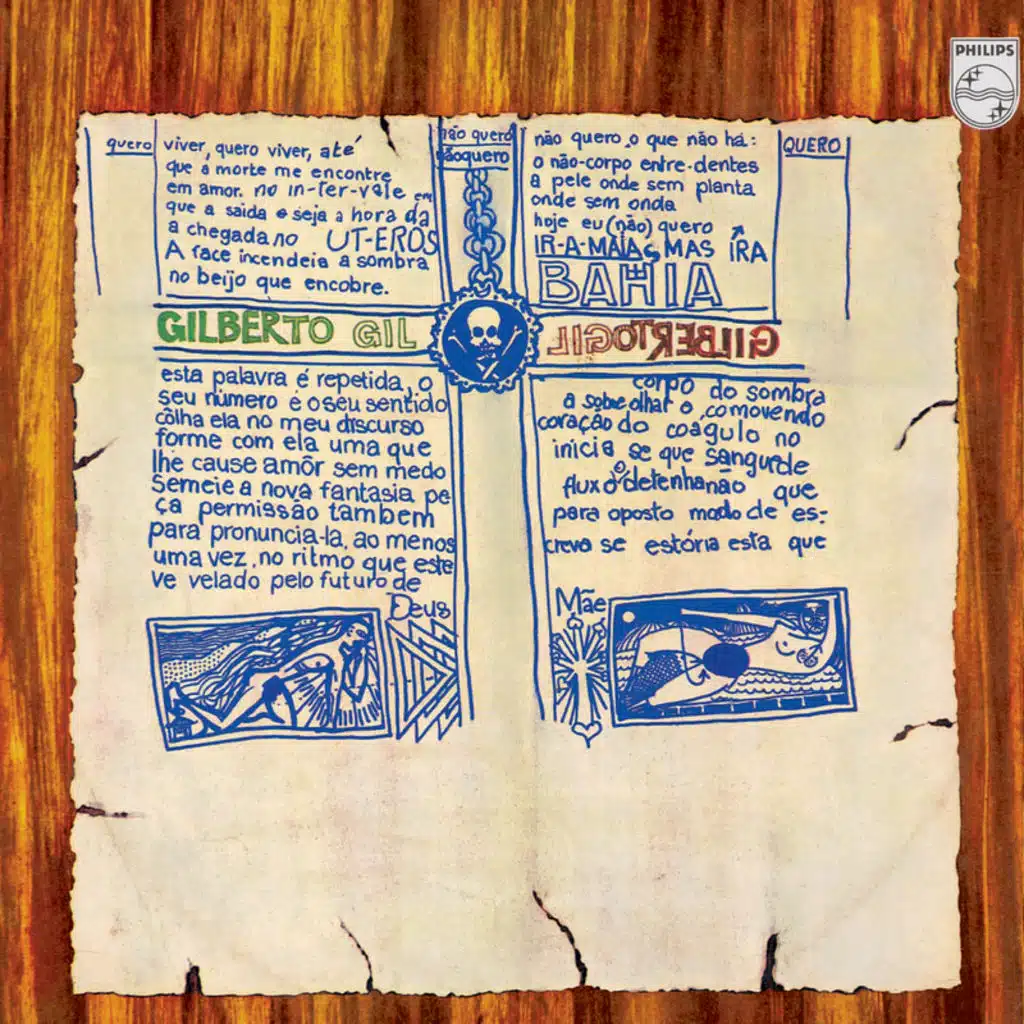 PHILIPS
quero
viver, quero viver, até
que a morte me encontre
em amor. no in-ter-vale em
que a saida e seja a hora da
a chegada no UT-EROS
A face incendeia a sombra
no beijo que encobre.
não quero
nãoquero
não quero o que não há:
o não-corpo entre-dentes
a pele onde sem planta
onde sem onda
hoje eu (não) quero
IR-A-MAIAS MAS IRA
BAHIA
QUERO
GILBERTO GIL
GILBERTOGIL
esta palavra é repetida, o
seu número é o seu sentido
côlha ela no meu discurso
forme com ela uma que
lhe cause amôr sem medo
Semeie a nova fantasia pe
ça permissão tambem
para pronuncia-la, ao menos
uma vez, no ritmo que este
ve velado pelo futuro de
Deus
corpo do sombra
a sobre olhar o, comovendo
coração do coagulo no
inicia se que sangue de
fluxo o detenha não que
para oposto modo de es-
creva se estória esta que
Mãe